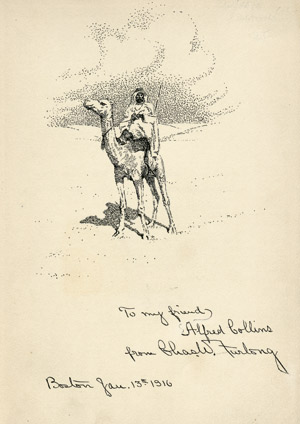 To my friend
Alfred Collins
from Chas W. Furlong
Boston Jan. 13th 1916